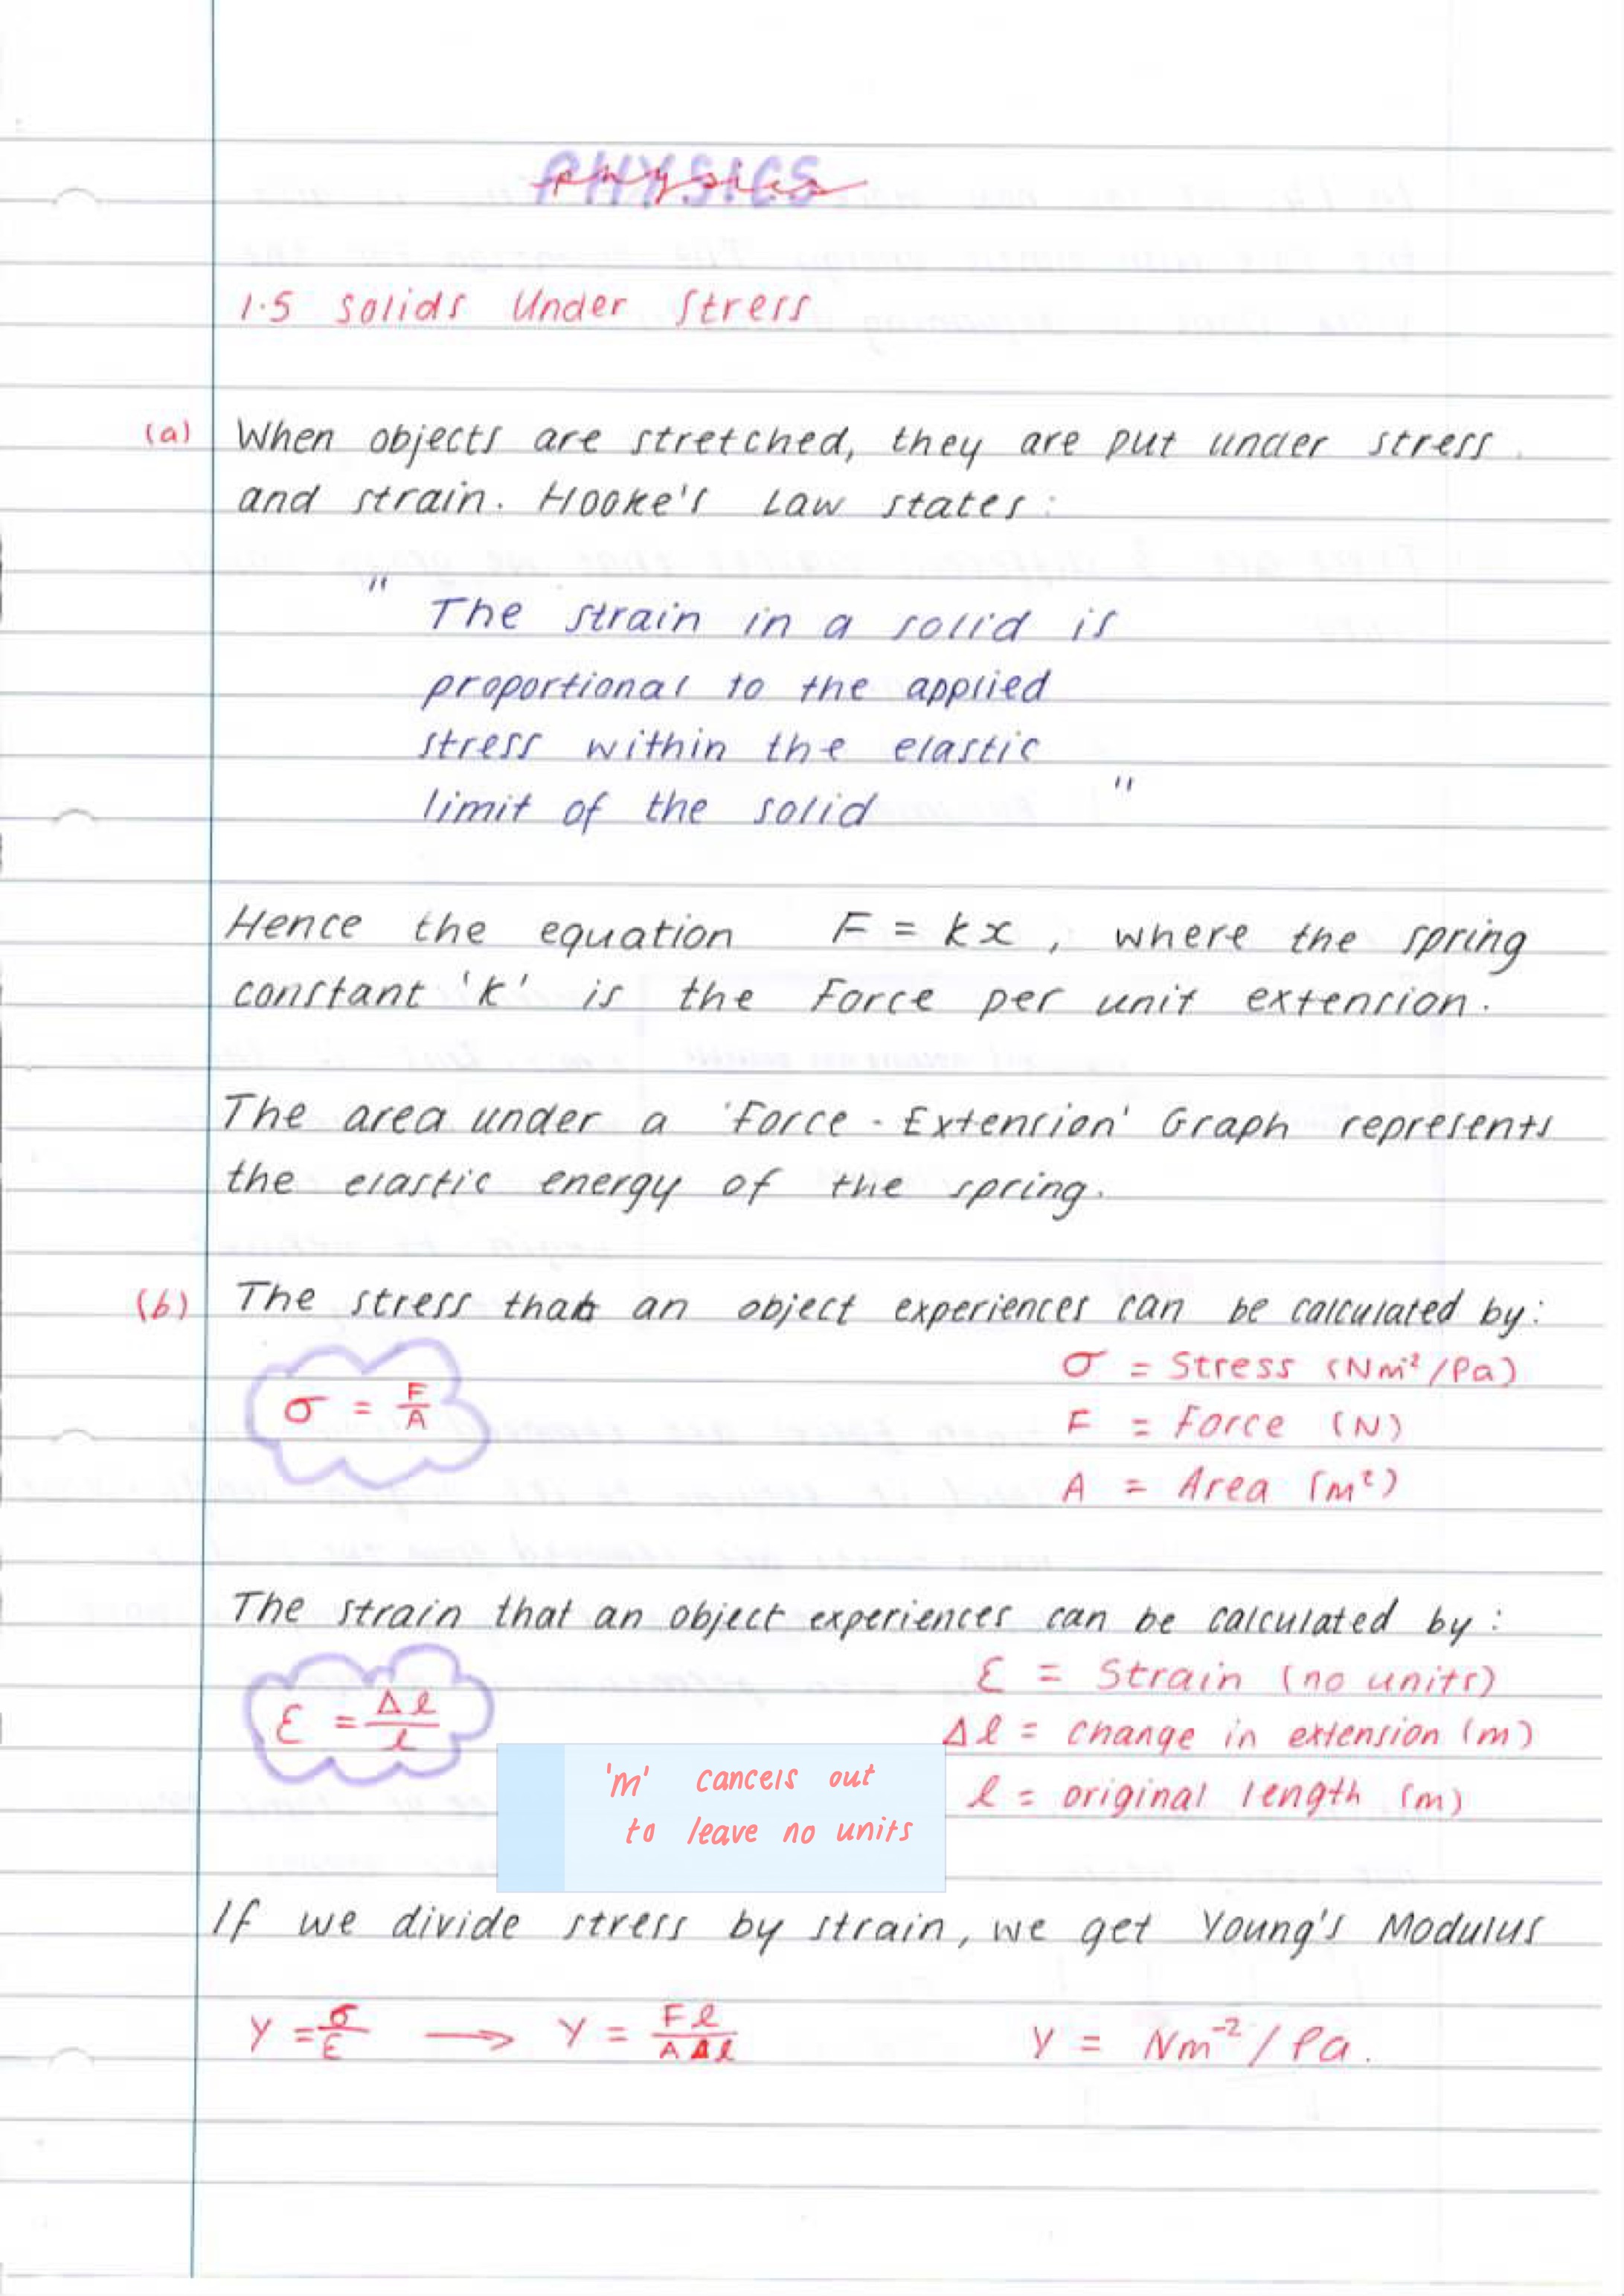 PHYSICS
physics
1.5 Solids Under Stress
(a) When objects are stretched, they are put under stress
and strain. Hooke's Law states:
" The strain in a solid is
proportional to the applied
stress within the elastic
limit of the solid "
Hence the equation F = kx, where the spring
constant 'k' is the Force per unit extension.
The area under a 'Force - Extension' Graph represents
the elastic energy of the spring.
(b) The stress that an object experiences can be calculated by:
σ = F/A
σ = Stress (Nm² / Pa)
F = Force (N)
A = Area (m²)
The strain that an object experiences can be calculated by:
ε = Δl/l
ε = Strain (no units)
Δl = change in extension (m)
l = original length (m)
'm' cancels out
to leave no units
If we divide stress by strain, we get Young's Modulus
Y = σ/ε → Y = Fl/AΔl Y = Nm⁻² / Pa.